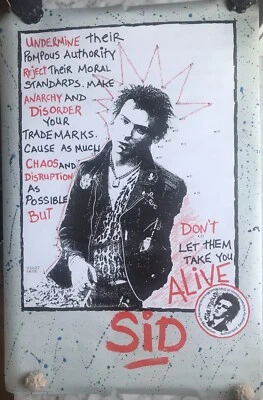 UNDERMINE their
POMPOUS AUTHORITY
REJECT THEIR MORAL
STANDARDS. MAKE
ANARCHY AND
DISORDER
YOUR
TRADEMARKS.
CAUSE AS MUCH
CHAOS AND
DISRUPTION
AS
POSSIBLE
BUT
DON'T
LET THEM
TAKE YOU
ALIVE
SiD